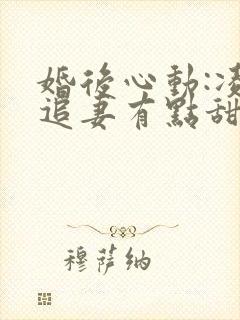 婚後心動:凌
追妻有點甜
穆薩納